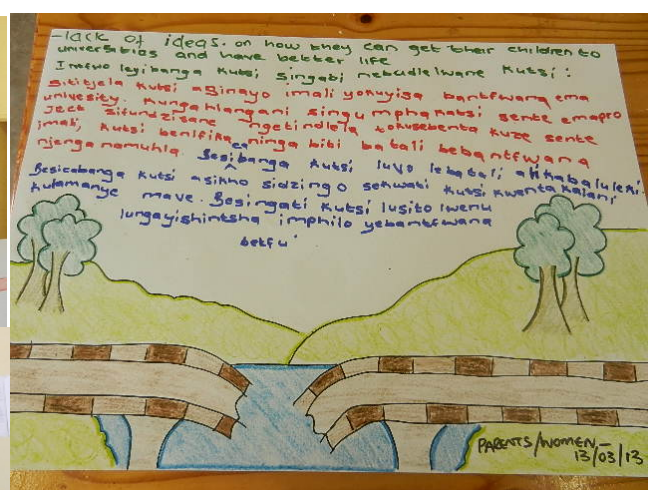 -lack of ideas. on how they can get their children to
universities and have better life
Imfwo leyibanga kutsi singabi nebudlelwane kutsi:
sititjela kutsi asinayo imali yokuyisa bantfwana ema
univesity. kungahlangani singumphakatsi sente emapro
ject sifundzisane ngetindlela tokusebenta kuze sente
imali, kutsi benifike ninga biti batali bebantfwana
njenga namuhla. Besicabanga kutsi luvo lebatali alikabaluleki
Besicabanga kutsi asikho sidzingo sekwati kutsi kwentakalani
kulamanye mave. Besingati kutsi lusito lwenu
lungayishintsha imphilo yebantfwana
betfu.
PARENTS/WOMEN-
13/03/13